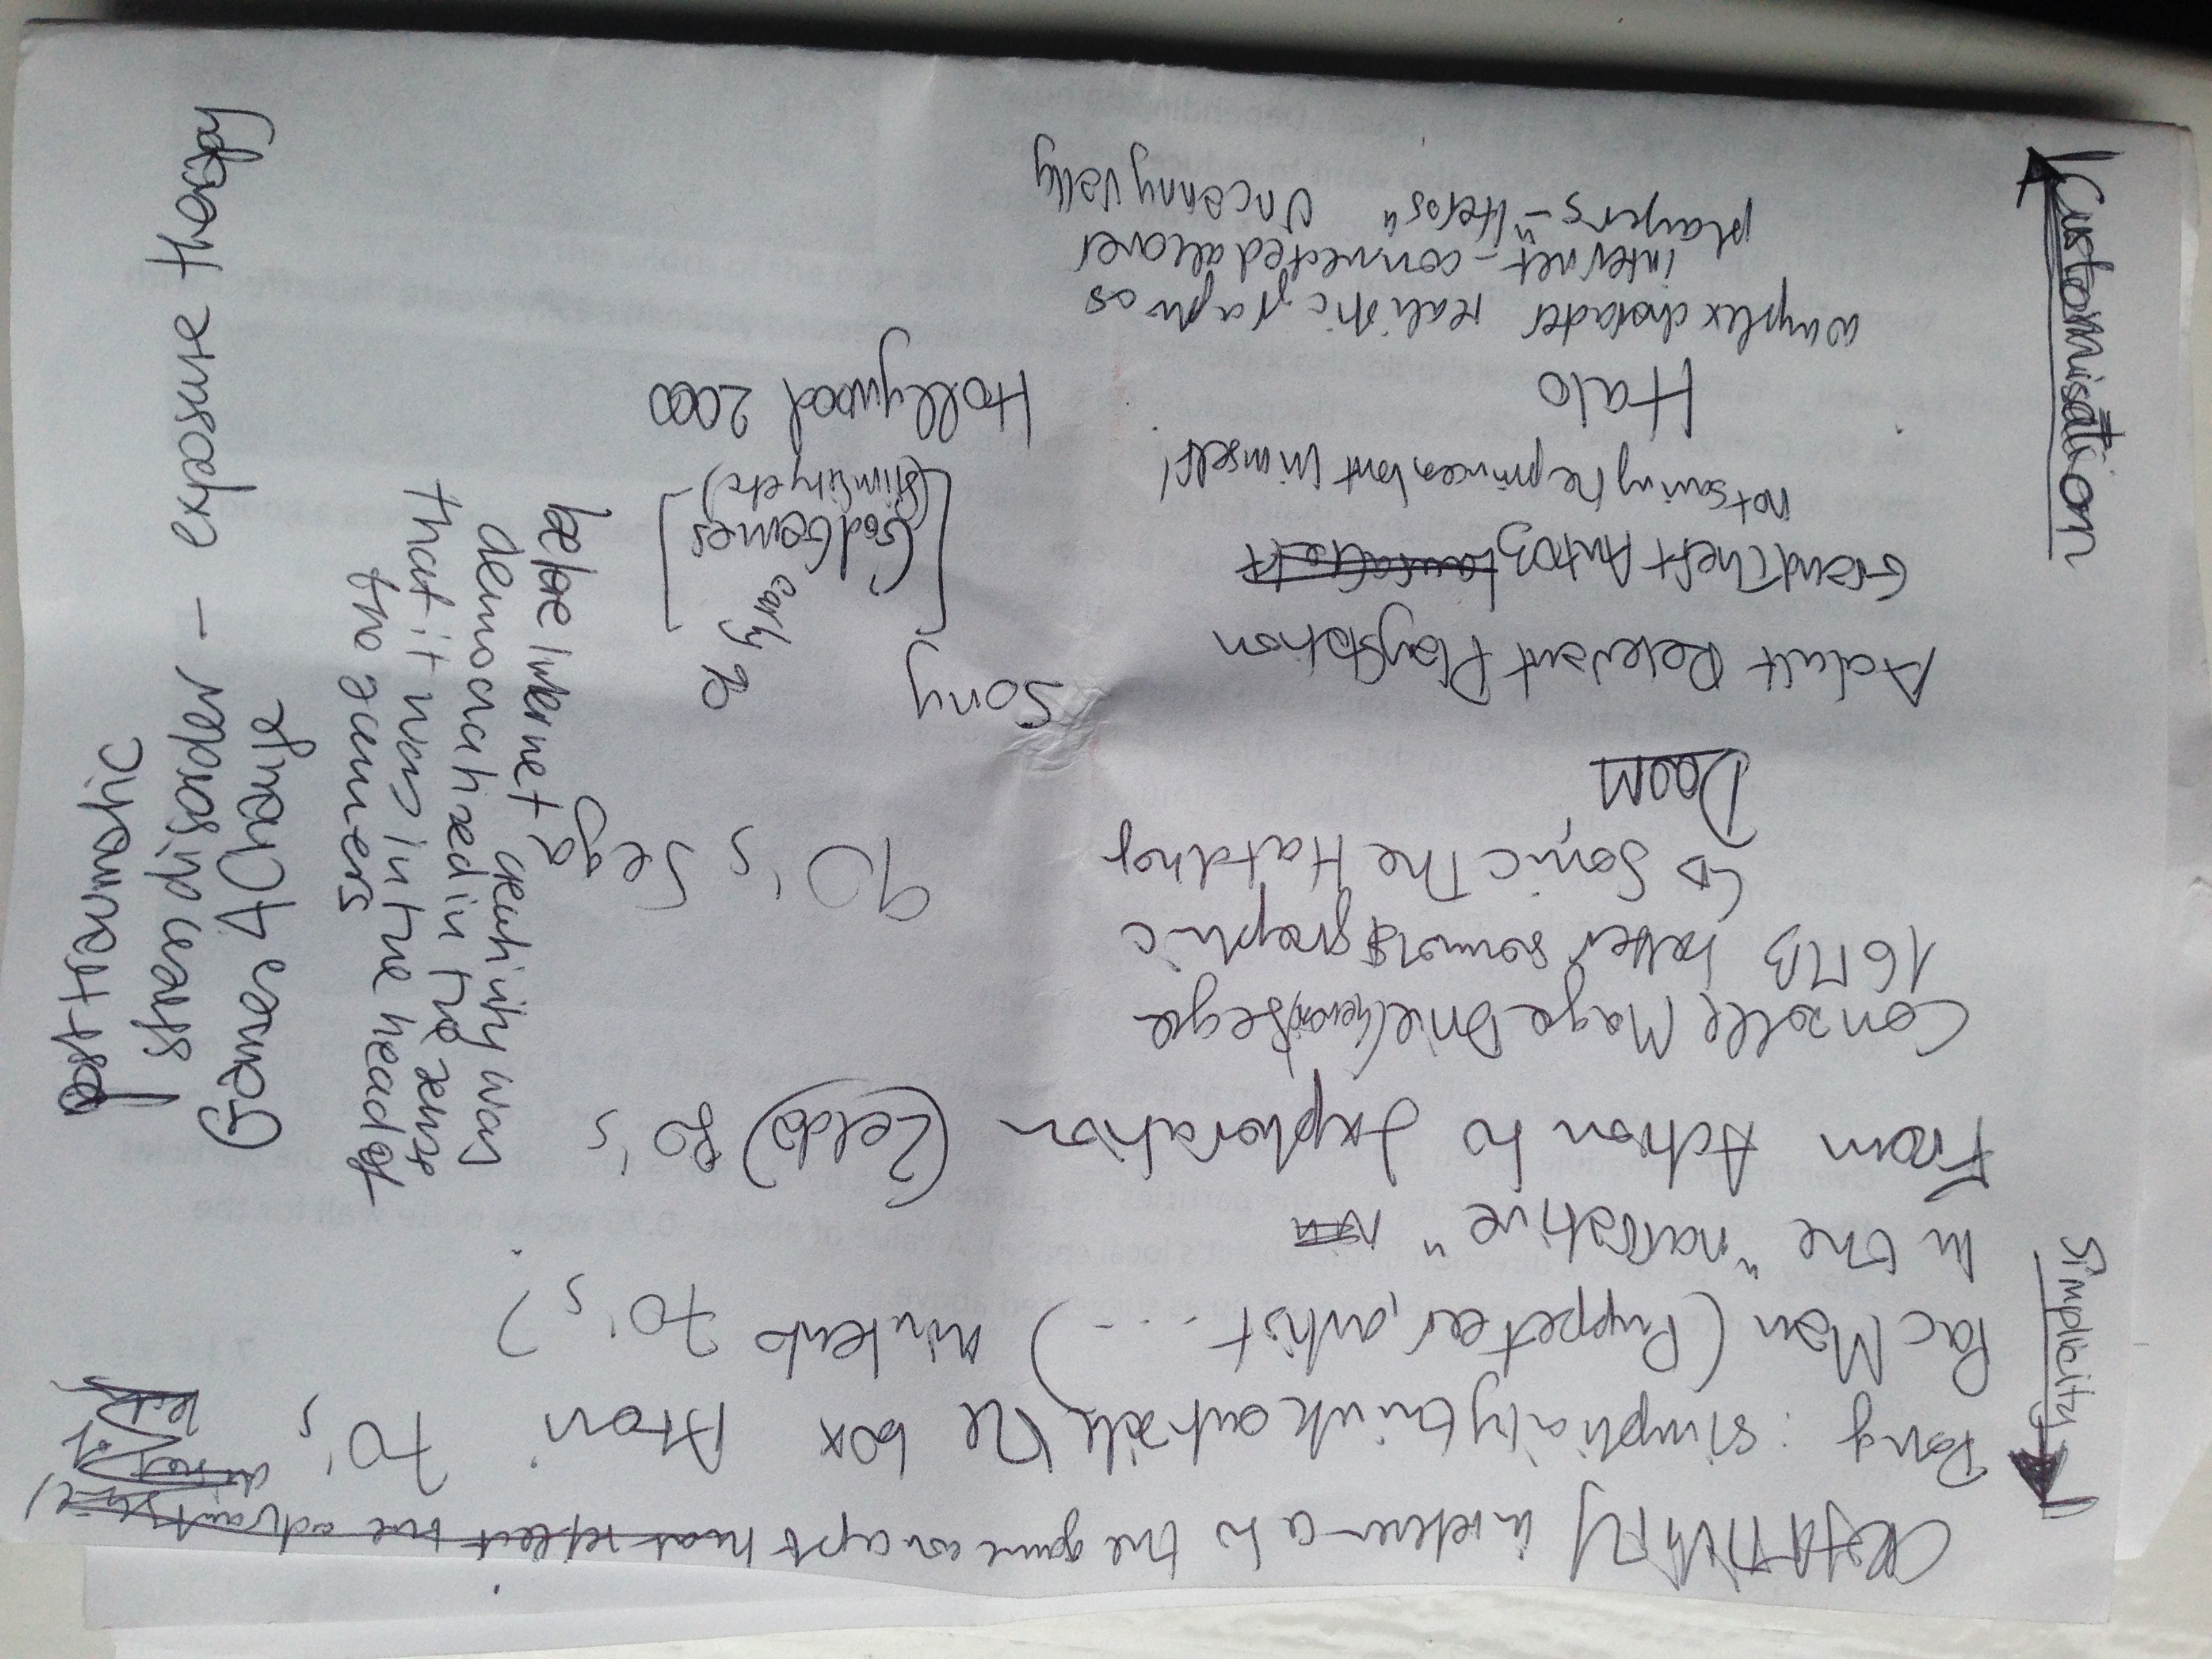 CREATIVITY in reference to the game concept that reflect the advant
Pong : simplicity think outside the box Atari 70's
Pac Man (Puppeteer, artist ....) nintendo 70's?
In the "narrative"
From Action to Exploration (Zelda) 80's
Consolle Mega Drive Sega
16MB better sound & graphic
↳ Sonic The Hatdhog 90's Sega
DOOM
Adult Relevant PlayStation Sony
Grand Theft Auto 3
not saving the princess but himself!
[God Games early 90
(SimCity etc)]
Halo Hollywood 2000
complex character realistic graphics
internet - connected all over
players - "Heros" Uncanny Vally
Simplicity
Customisation
before internet creativity was
democratized in the sense
that it was in the head of
the gamers
Post traumatic
stress disorder - exposure therapy
Games 4 Change